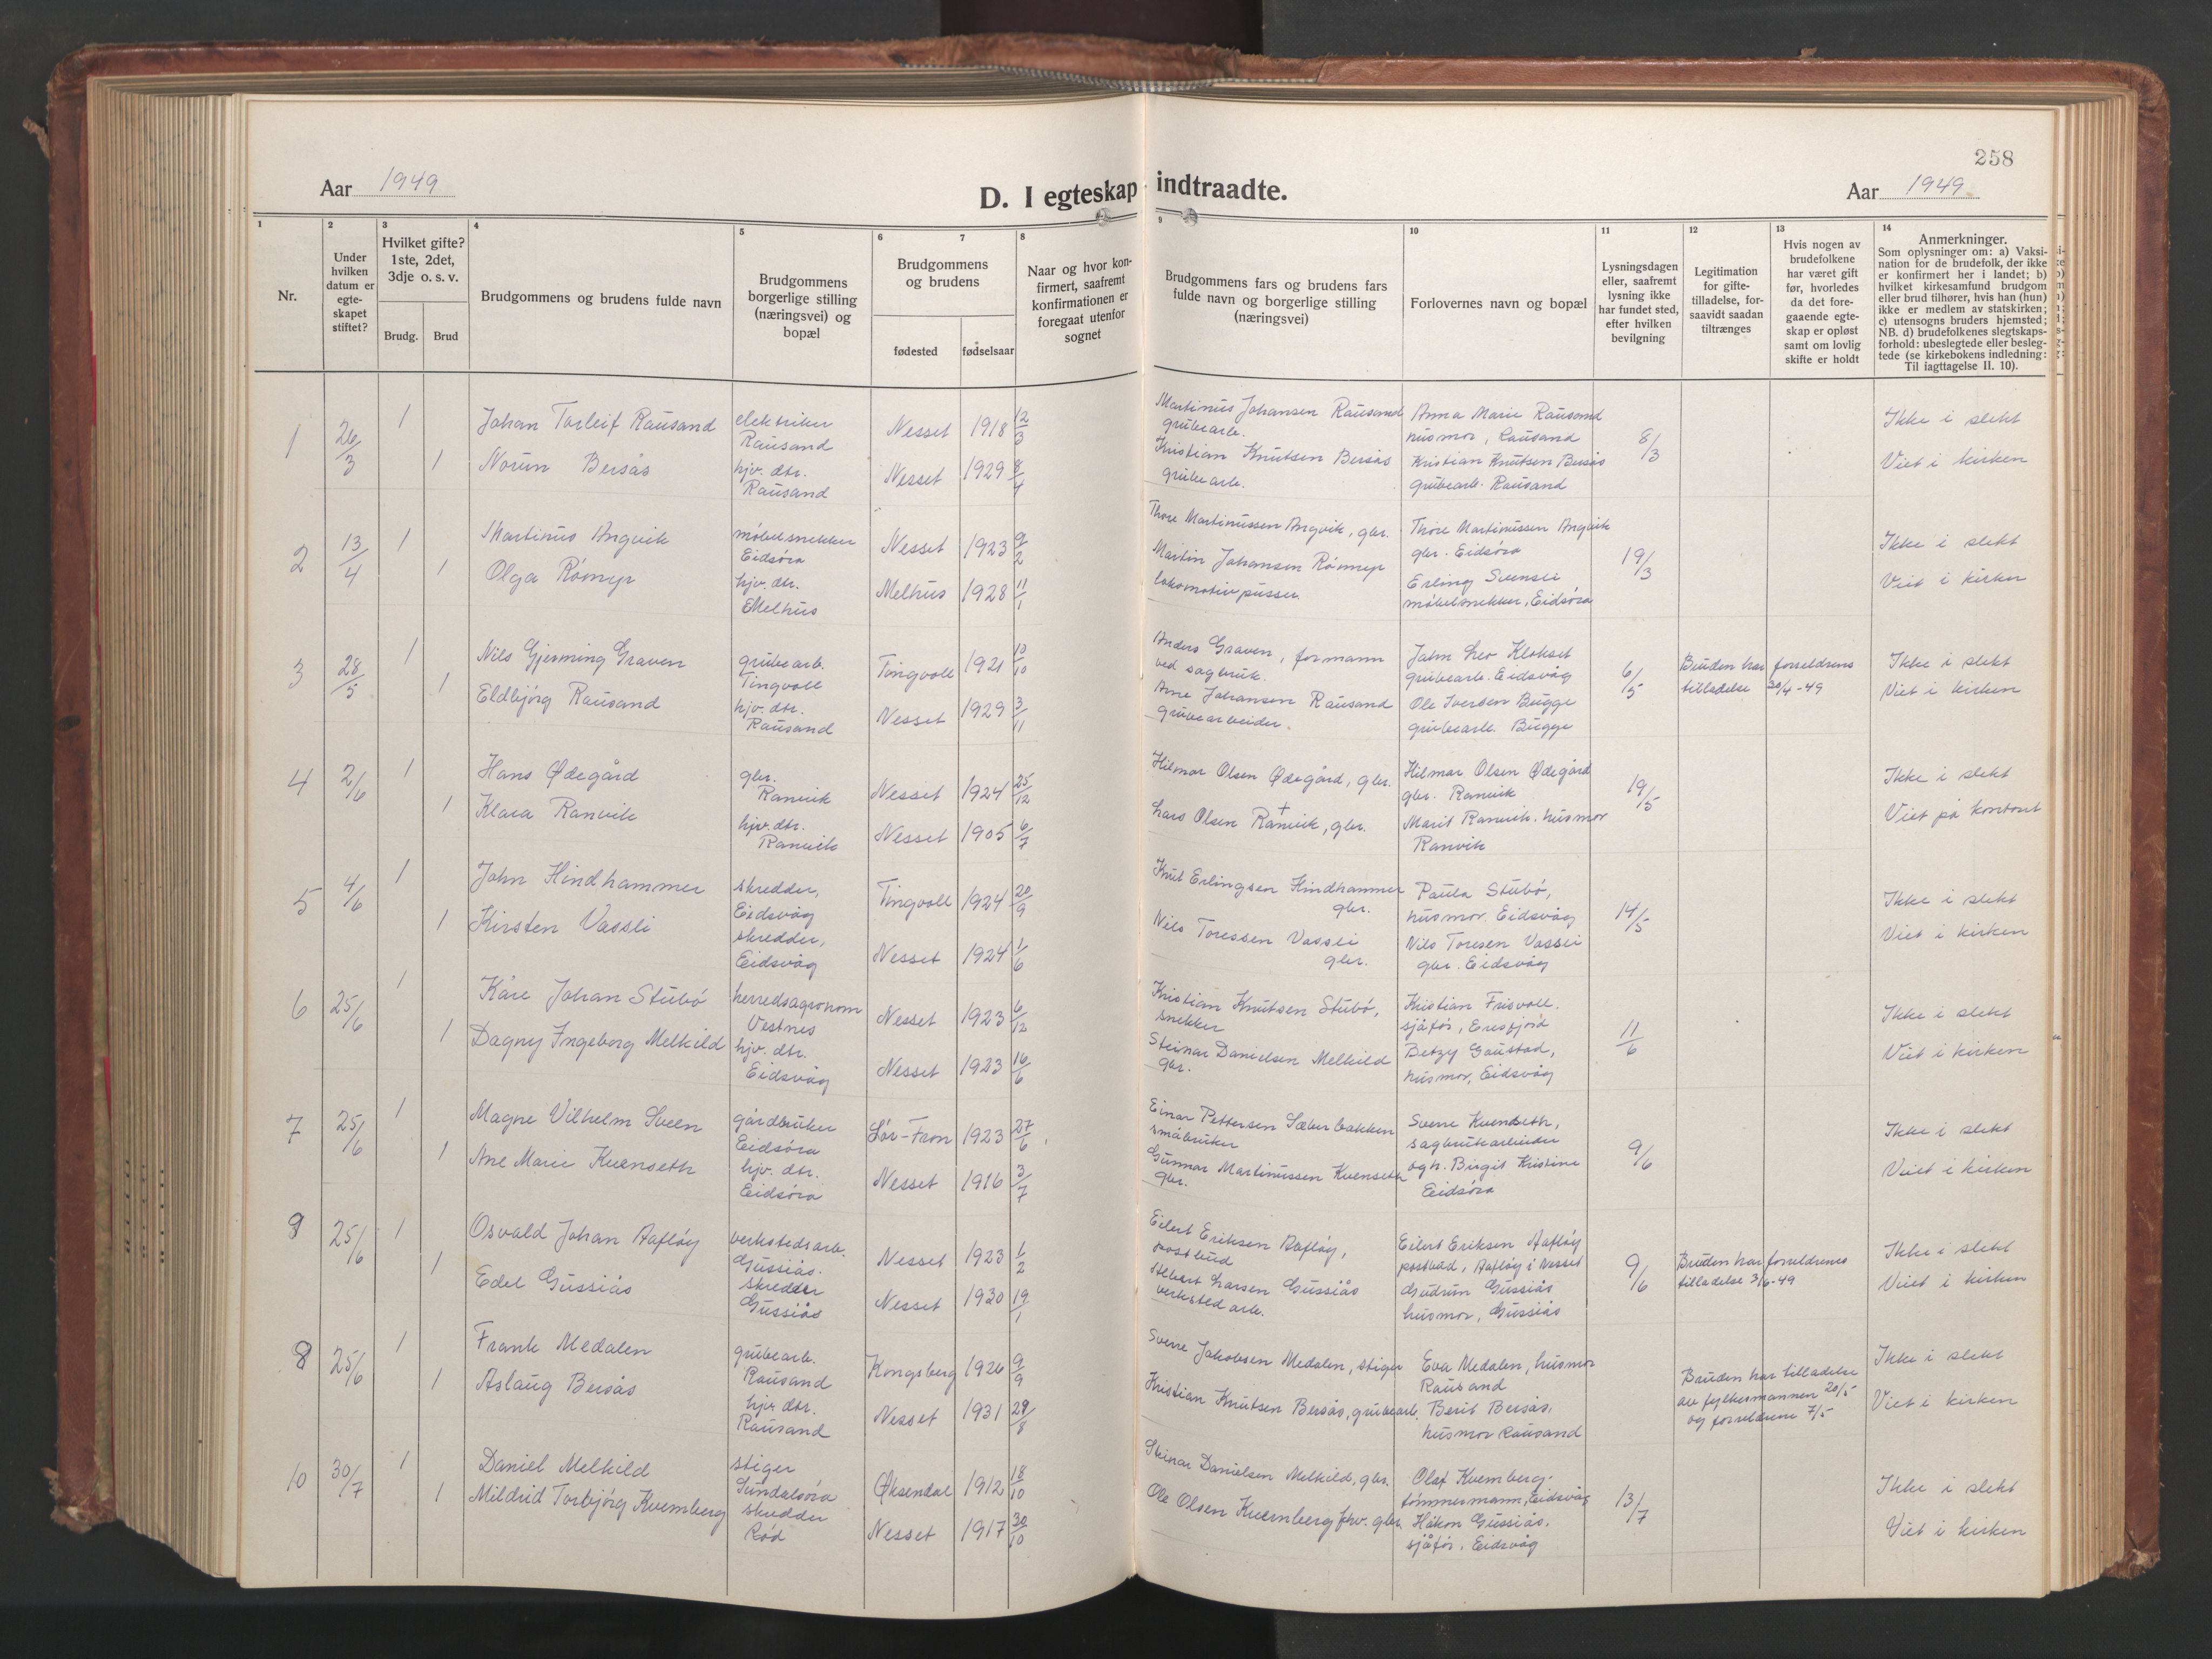 258
Aar 1949
D. I egteskap indtraadte.
Aar 1949
1
Nr.
2
Under
hvilken
datum er
egte-
skapet
stiftet?
3
Hvilket gifte?
1ste, 2det,
3dje o. s. v.
Brudg.
Brud
4
Brudgommens og brudens fulde navn
5
Brudgommens
borgerlige stilling
(næringsvei) og
bopæl
6
7
Brudgommens
og brudens
fødested
fødselsaar
8
Naar og hvor kon-
firmert, saafremt
konfirmationen er
foregaat utenfor
sognet
9
Brudgommens fars og brudens fars
fulde navn og borgerlige stilling
(næringsvei)
10
Forlovernes navn og bopæl
11
Lysningsdagen
eller, saafremt
lysning ikke
har fundet sted,
efter hvilken
bevilgning
12
Legitimation
for gifte-
tilladelse, for-
saavidt saadan
tiltrænges
13
Hvis nogen av
brudefolkene
har været gift
før, hvorledes
da det fore-
gaaende egte-
skap er opløst
samt om lovlig
skifte er holdt
14
Anmerkninger.
Som oplysninger om: a) Vaksi-
nation for de brudefolk, der ikke
er konfirmert her i landet; b)
hvilket kirkesamfund brudgom
eller brud tilhører, hvis han (hun)
ikke er medlem av statskirken;
c) utensogns bruders hjemsted;
NB. d) brudefolkenes slegtskaps-
forhold: ubeslegtede eller besleg-
tede (se kirkebokens indledning:
Til iagttagelse II. 10).
1
26/3
1
Johan Torleif Rausand
elektriker
Rausand
Nesset 1918 12/3
Martinus Johansen Rausand
grubearb.
Anna Marie Rausand
husmor, Rausand
8/3
Ikke i slekt
1
Norun Bersås
hjv. dtr.
Rausand
Nesset 1929 8/4
Kristian Knutsen Bersås
grubearb.
Kristian Knutsen Bersås
grubearb. Rausand
Viet i kirken
2
13/4
1
Martinus Angvik
møbelsnekker
Eidsøra
Nesset 1923 9/2
Thore Martinussen Angvik, gbr.
Thore Martinussen Angvik
gbr. Eidsøra
19/3
Ikke i slekt
1
Olga Rømyr
hjv. dtr.
Melhus
Melhus 1928 11/1
Martin Johansen Rømyr
lokomotivpusser.
Erling Svensli
møbelsnekker, Eidsøra
Viet i kirken
3
28/5
1
Nils Gjerming Graven
grubearb.
Tingvoll
Tingvoll 1921 10/10
Anders Graven, formann
ved sagbruk.
John Leo Klokset
grubearb. Eidsvåg
6/5
Bruden har foreldrenes
tilladelse 30/4-49
Ikke i slekt
1
Eldbjørg Rausand
hjv. dtr.
Rausand
Nesset 1929 3/11
Arne Johansen Rausand
grubearbeider.
Ole Iversen Bugge
grubearb. Bugge
Viet i kirken
4
2/6
1
Hans Ødegård
gbr.
Ranvik
Nesset 1924 25/12
Hilmar Olsen Ødegård, gbr.
Hilmar Olsen Ødegård
gbr. Ranvik
19/5
Ikke i slekt
1
Klara Ranvik
hjv. dtr.
Ranvik
Nesset 1905 6/7
Lars Olsen Ranvik +, gbr.
Marit Ranvik. husmor
Ranvik
Viet på kontoret
5
4/6
1
John Hindhammer
skredder,
Eidsvåg
Tingvoll 1924 20/9
Knut Erlingsen Hindhammer
gbr.
Paula Stubø,
husmor. Eidsvåg
14/5
Ikke i slekt
1
Kirsten Vassli
skredder,
Eidsvåg
Nesset 1924 1/6
Nils Toressen Vassli
gbr.
Nils Toresen Vassli
gbr. Eidsvåg
Viet i kirken
6
25/6
1
Kåre Johan Stubø
herredsagronom
Vestnes
Nesset 1923 6/12
Kristian Knutsen Stubø,
snekker
Kristian Frisvoll.
sjåfør, Eresfjord
11/6
Ikke i slekt
1
Dagny Ingeborg Melkild
hjv. dtr.
Eidsvåg
Nesset 1923 16/6
Steinar Danielsen Melkild
gbr.
Betzy Gaustad,
husmor, Eidsvåg
Viet i kirken
7
25/6
1
Magne Vilhelm Sveen
gårdbruker
Eidsøra
Sør-Fron 1923 27/6
Einar Pettersen Sæterbakken
småbruker
Sverre Kvenseth,
sagbrukarbeider
9/6
Ikke i slekt
1
Ane Marie Kvenseth
hjv. dtr.
Eidsøra
Nesset 1916 3/7
Gunnar Martinussen Kvenseth
gbr.
og h. Birgit Kristine
Eidsøra
Viet i kirken
25/6
1
Osvald Johan Aafløy
verkstedsarb.
Gussiås.
Nesset 1923 1/2
Eilert Eriksen Aafløy,
postbud
Eilert Eriksen Aafløy
postbud, Aafløy i Nesset
9/6
Bruden har foreldrenes
tilladelse 3/6-49
Ikke i slekt
1
Edel Gussiås
skredder
Gussiås
Nesset 1930 19/1
Larsen Gussiås
verkstedarb.
Gudrun Gussiås
husmor, Gussiås
Viet i kirken
25/6
1
Frank Medalen
grubearb.
Rausand
Kongsberg 1926 9/9
Sverre Jakobsen Medalen, stiger
Eva Medalen, husmor
Rausand
Bruden har tilladelse
av fylkesmannen 20/5
og foreldrene 7/5
Ikke i slekt
1
Aslaug Bersås
hjv. dtr.
Rausand
Nesset 1931 29/8
Kristian Knutsen Bersås, grubearb.
Berit Bersås,
husmor Rausand
Viet i kirken
10
30/7
1
Daniel Melkild
stiger
Sundalsøra
Øksendal 1912 18/10
Steinar Danielsen Melkild, gbr.
Olaf Kvernberg.
tømmermann, Eidsvåg
13/7
Ikke i slekt
1
Mildrid Torbjørg Kvernberg
skredder
Rød
Nesset 1917 30/10
Ole Olsen Kvernberg fhv. gbr.
Håkon Gussiås.
sjåfør. Eidsvåg
Viet i kirken